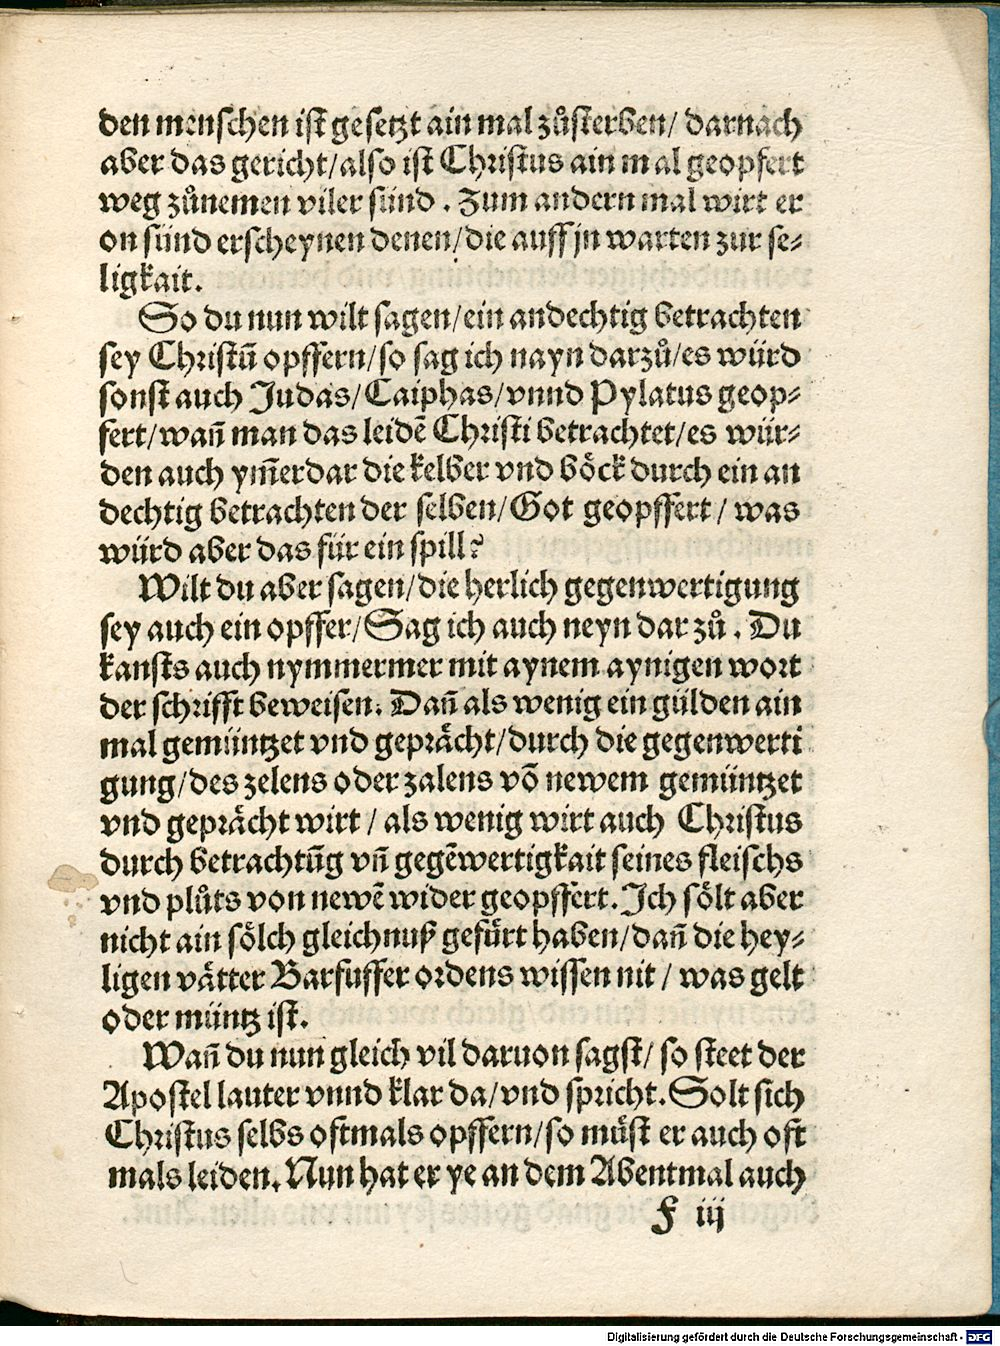 den menschen ist gesetzt ain mal zůsterben/ darnach
aber das gericht/also ist Christus ain mal geopfert
weg zůnemen viler sünd . Zum andern mal wirt er
on sünd erscheynen denen/die auff jn warten zur se-
ligkait.
So du nun wilt sagen/ein andechtig betrachten
sey Christū opffern/so sag ich nayn darzů/es würd
sonst auch Judas/Caiphas/vnnd Pylatus geop-
fert/wan̄ man das leidē Christi betrachtet/es wür-
den auch ym̄erdar die kelber vnd böck durch ein an
dechtig betrachten der selben/Got geopffert/ was
würd aber das für ein spill?
Wilt du aber sagen/die herlich gegenwertigung
sey auch ein opffer/Sag ich auch neyn dar zů . Du
kansts auch nymmermer mit aynem aynigen wort
der schrifft beweisen. Dan̄ als wenig ein gülden ain
mal gemüntzet vnd geprächt/durch die gegenwerti
gung/des zelens oder zalens vō newem gemüntzet
vnd geprächt wirt/ als wenig wirt auch Christus
durch betrachtūg vn̄ gegēwertigkait seines fleischs
vnd plůts von newē wider geopffert. Ich sölt aber
nicht ain sölch gleichnuß gefürt haben/dan̄ die hey-
ligen vätter Barfusser ordens wissen nit/ was gelt
oder müntz ist.
Wan̄ du nun gleich vil daruon sagst/ so steet der
Apostel lauter vnnd klar da/vnd spricht. Solt sich
Christus selbs oftmals opffern/so müst er auch oft
mals leiden. Nun hat er ye an dem Abentmal auch
F iij
Digitalisierung gefördert durch die Deutsche Forschungsgemeinschaft - DFG